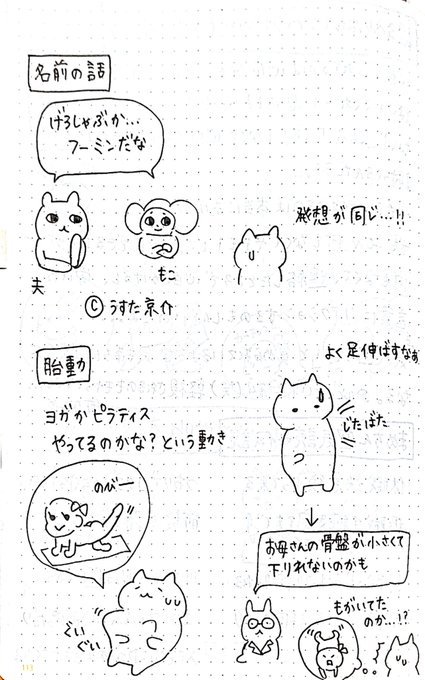 名前の話
げろしゃぶか…
フーミンだな
夫
もこ
発想が同じ…!!
©うすた京介
胎動
ヨガかピラティス
やってるのかな?という動き
のびー
ぐい
ぐい
よく足伸ばすなぁ
じたばた
お母さんの骨盤が小さくて
下りれないのかも
もがいてた
のか…!?
113